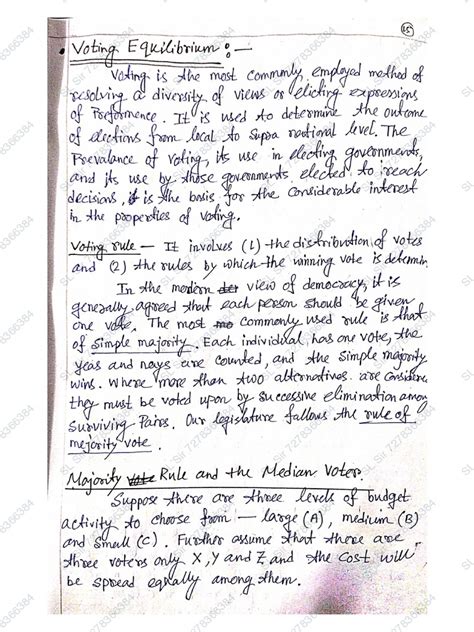 15
• Voting Equilibrium :—
Voting is the most commonly employed method of
resolving a diversity of views or eliciting expressions
of Preference. It is used to determine the outcome
of elections from local to Supra national level. The
Prevalance of Voting, its use in electing governments,
and its use by those governments elected to reach
decisions, it is the basis for the Considerable interest
in the properties of Voting.
Voting rule — It involves (1) the distribution of votes
and (2) the rules by which the winning vote is determin
In the modern view of democracy, it is
generally agreed that each person should be given
one vote. The most commonly used rule is that
of Simple majority. Each individual has one vote, the
yeas and nays are counted, and the Simple majority
wins. Where more than two alternatives are Considere
they must be voted upon by Successive elimination among
Surviving Pairs. Our legislature follows the rule of
majority vote.
Majority Rule and the Median Voter.
Suppose there are three levels of budget
activity to choose from — large (A), medium (B)
and Small (C). Further assume that there are
three voters only X, Y and Z and the Cost will
be spread equally among them.